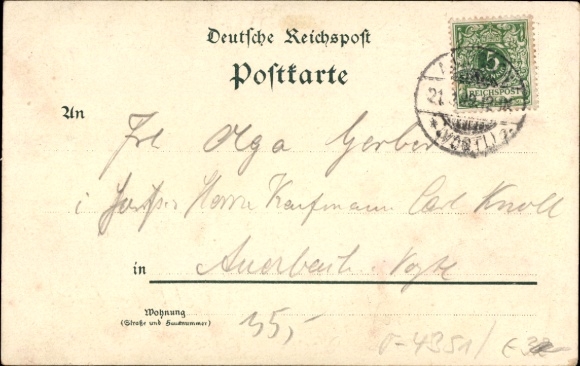 Deutsche Reichspost
Postkarte
5
REICHSPOST
21.3.
(VOGTL)
An
Frl Olga Gerber
i Herrn Kaufmann Carl Knoll
in Auerbach Vogtl
Wohnung
(Straße und Hausnummer)
35,-